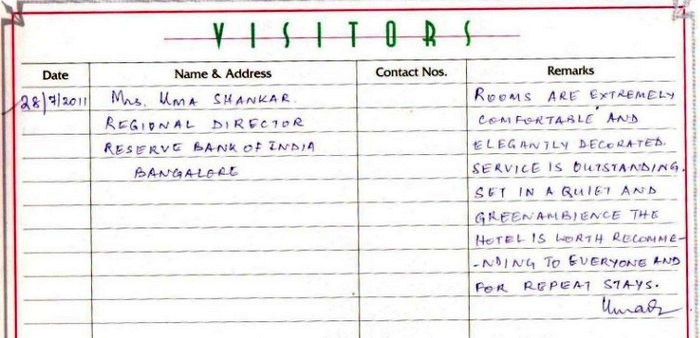 VISITORS
Date Name & Address Contact Nos. Remarks
28/7/2011 Mrs. UMA SHANKAR. ROOMS ARE EXTREMELY
REGIONAL DIRECTOR COMFORTABLE AND
RESERVE BANK OF INDIA ELEGANTLY DECORATED.
BANGALORE SERVICE IS OUTSTANDING.
SET IN A QUIET AND
GREEN AMBIENCE THE
HOTEL IS WORTH RECOMME-
-NDING TO EVERYONE AND
FOR REPEAT STAYS.